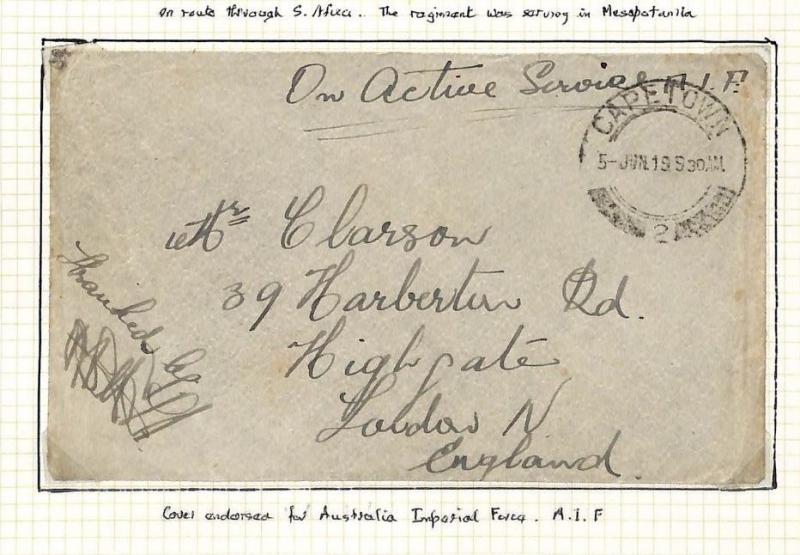 on route through S. Africa. The regiment was serving in Mesopotamia
On Active Service A.I.F.
CAPETOWN
5-JUN.19 9 30AM.
2
Mr Clarson
39 Harberton Rd.
Highgate
London N
England.
Franked by
Cover endorsed for Australia Imperial Force. A.I.F